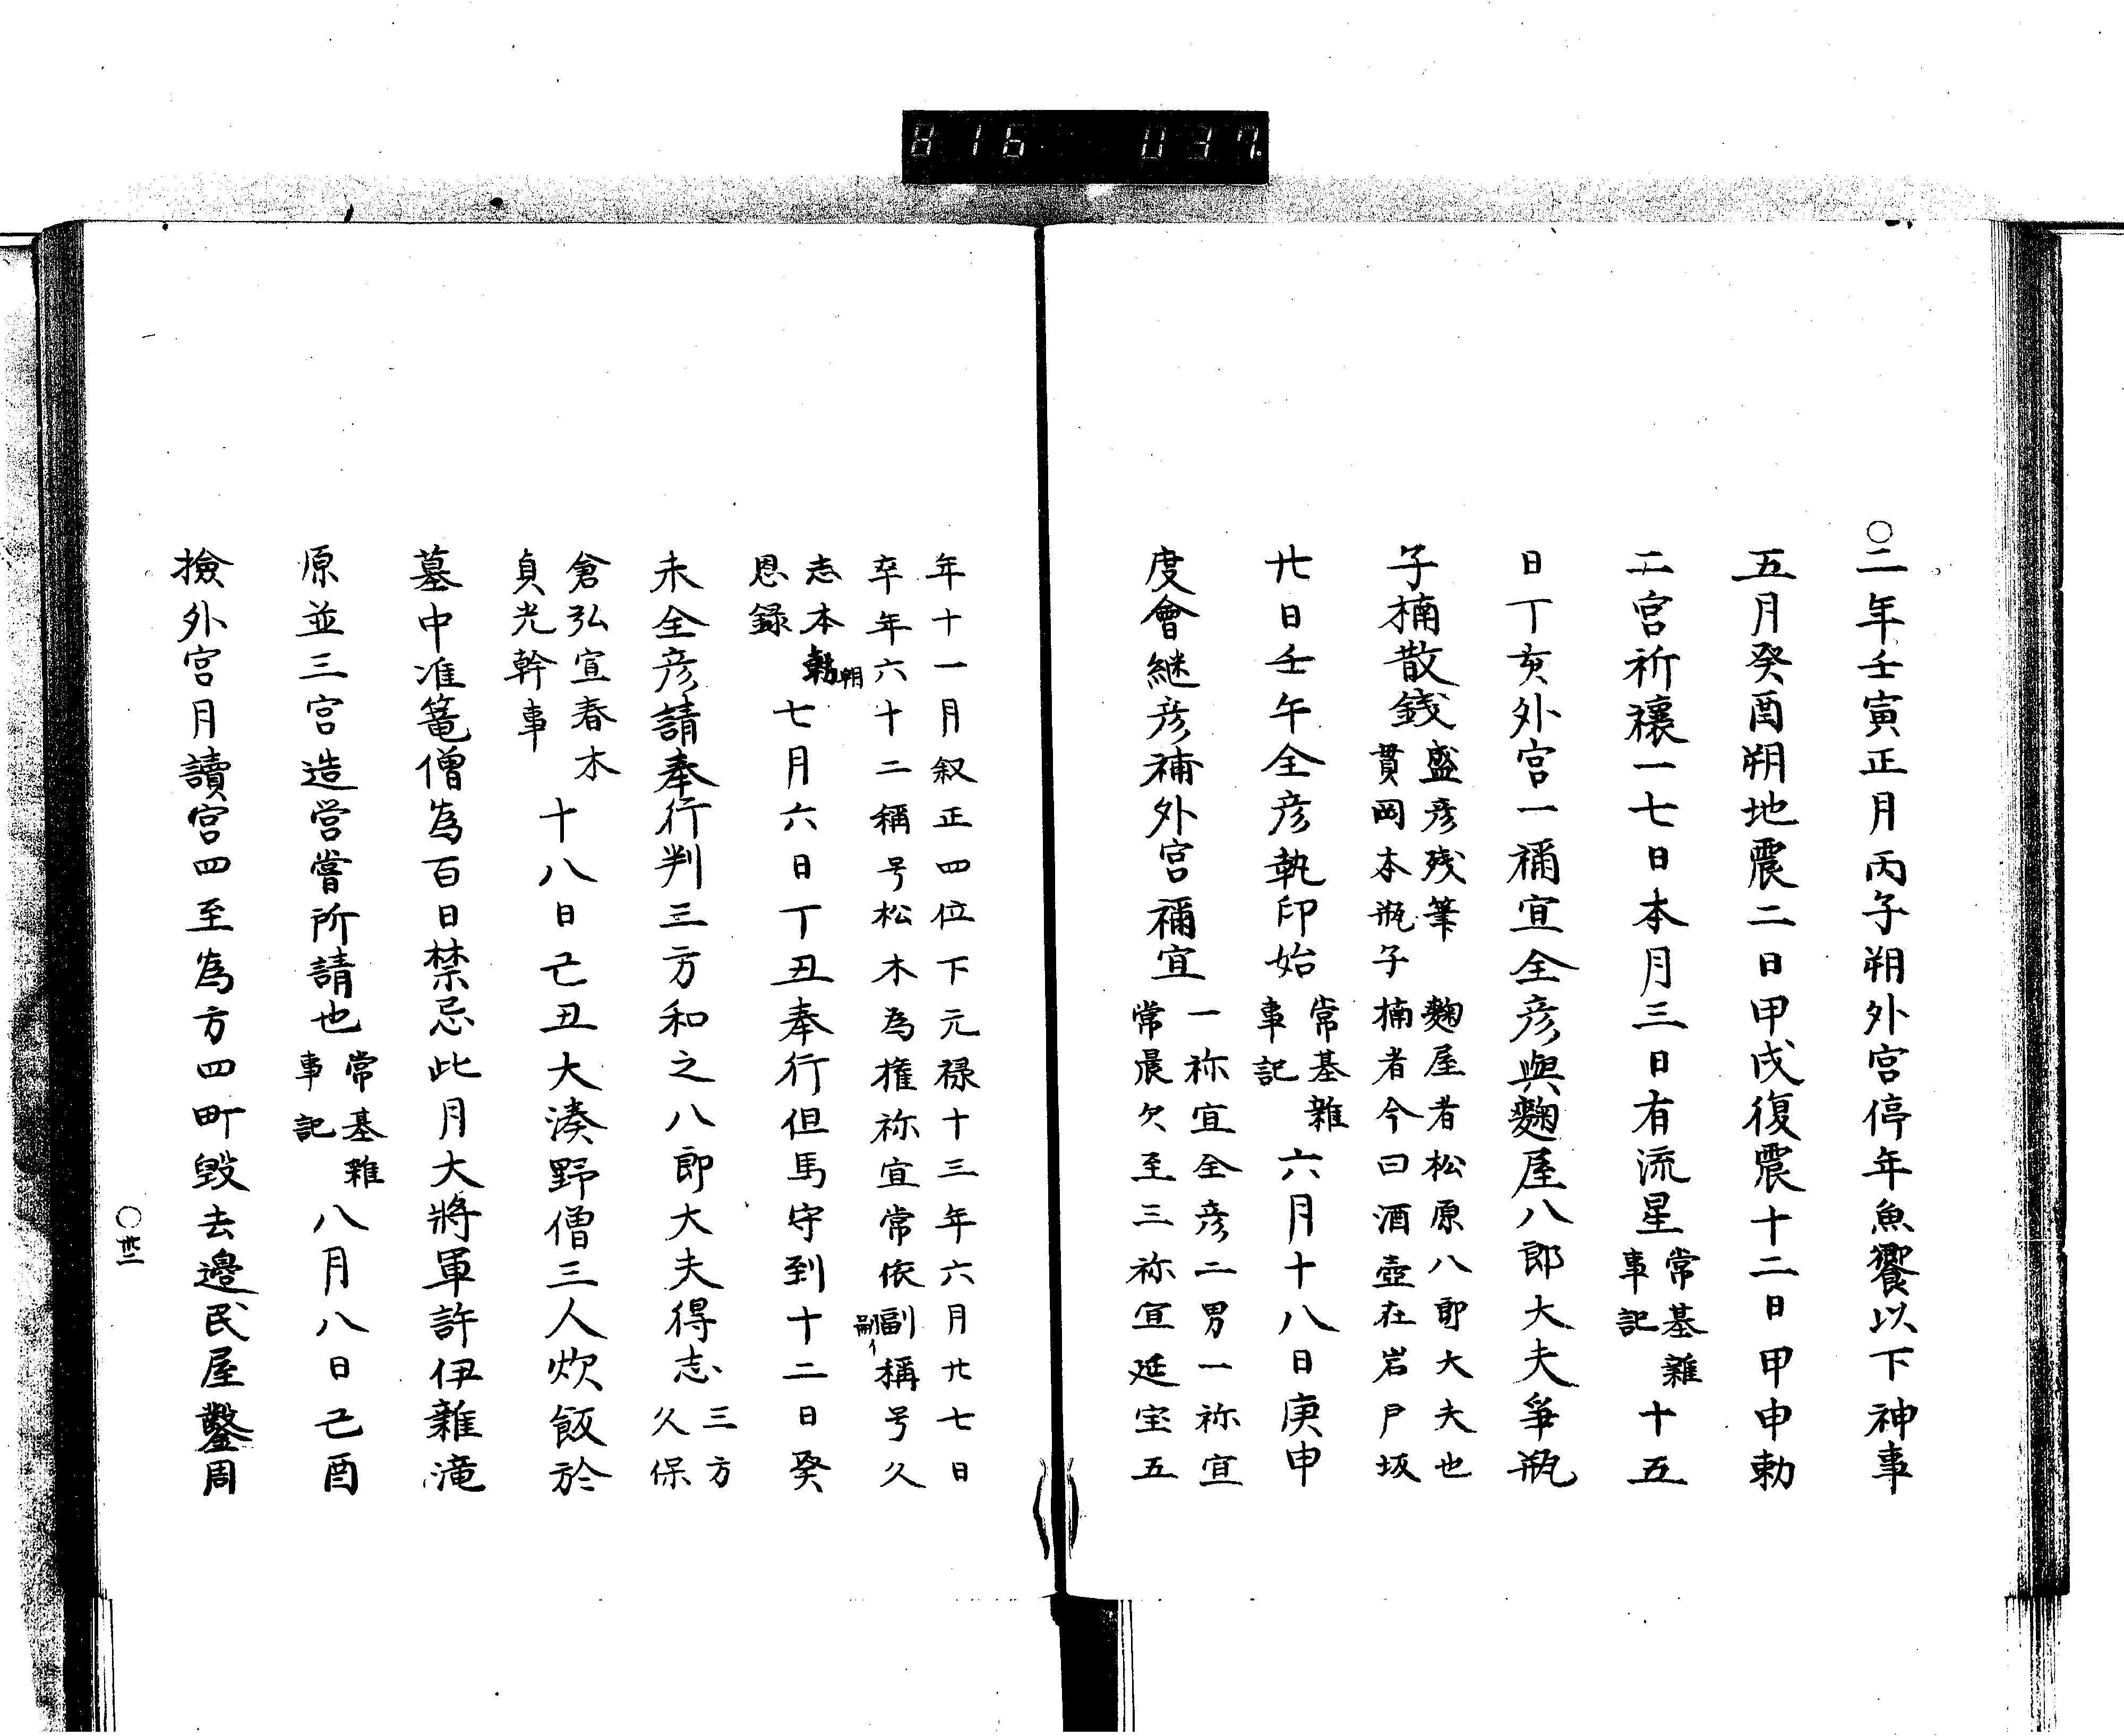 816 037
○二年壬寅正月丙子朔外宮停年魚饗以下神事
五月癸酉朔地震二日甲戌復震十二日甲申勅
二宮祈禳一七日本月三日有流星常基雜事記十五
日丁亥外宮一禰宜全彦與麹屋八郎大夫爭瓶
子楠散錢盛彦残筆貫岡本瓶子麹屋者松原八郎大夫也楠者今曰酒壺在岩戸坂
廿日壬午全彦執印始常基雜事記六月十八日庚申
度會継彦補外宮禰宜一祢宜全彦二男一祢宜常晨欠至三祢宜延宝五
年十一月叙正四位下元禄十三年六月廿七日卒年六十二稱号松木為権祢宜常依副嗣イ稱号久
志本朝恩録七月六日丁丑奉行但馬守到十二日癸
未全彦請奉行判三方和之八郎大夫得志三方久保
倉弘宣春木貞光幹事十八日己丑大湊野僧三人炊飯於
墓中准篭僧為百日禁忌此月大將軍許伊雜滝
原並三宮造営甞所請也常基雜事記八月八日己酉
撿外宮月讀宮四至為方四町毀去邊民屋鑿周
○卅二